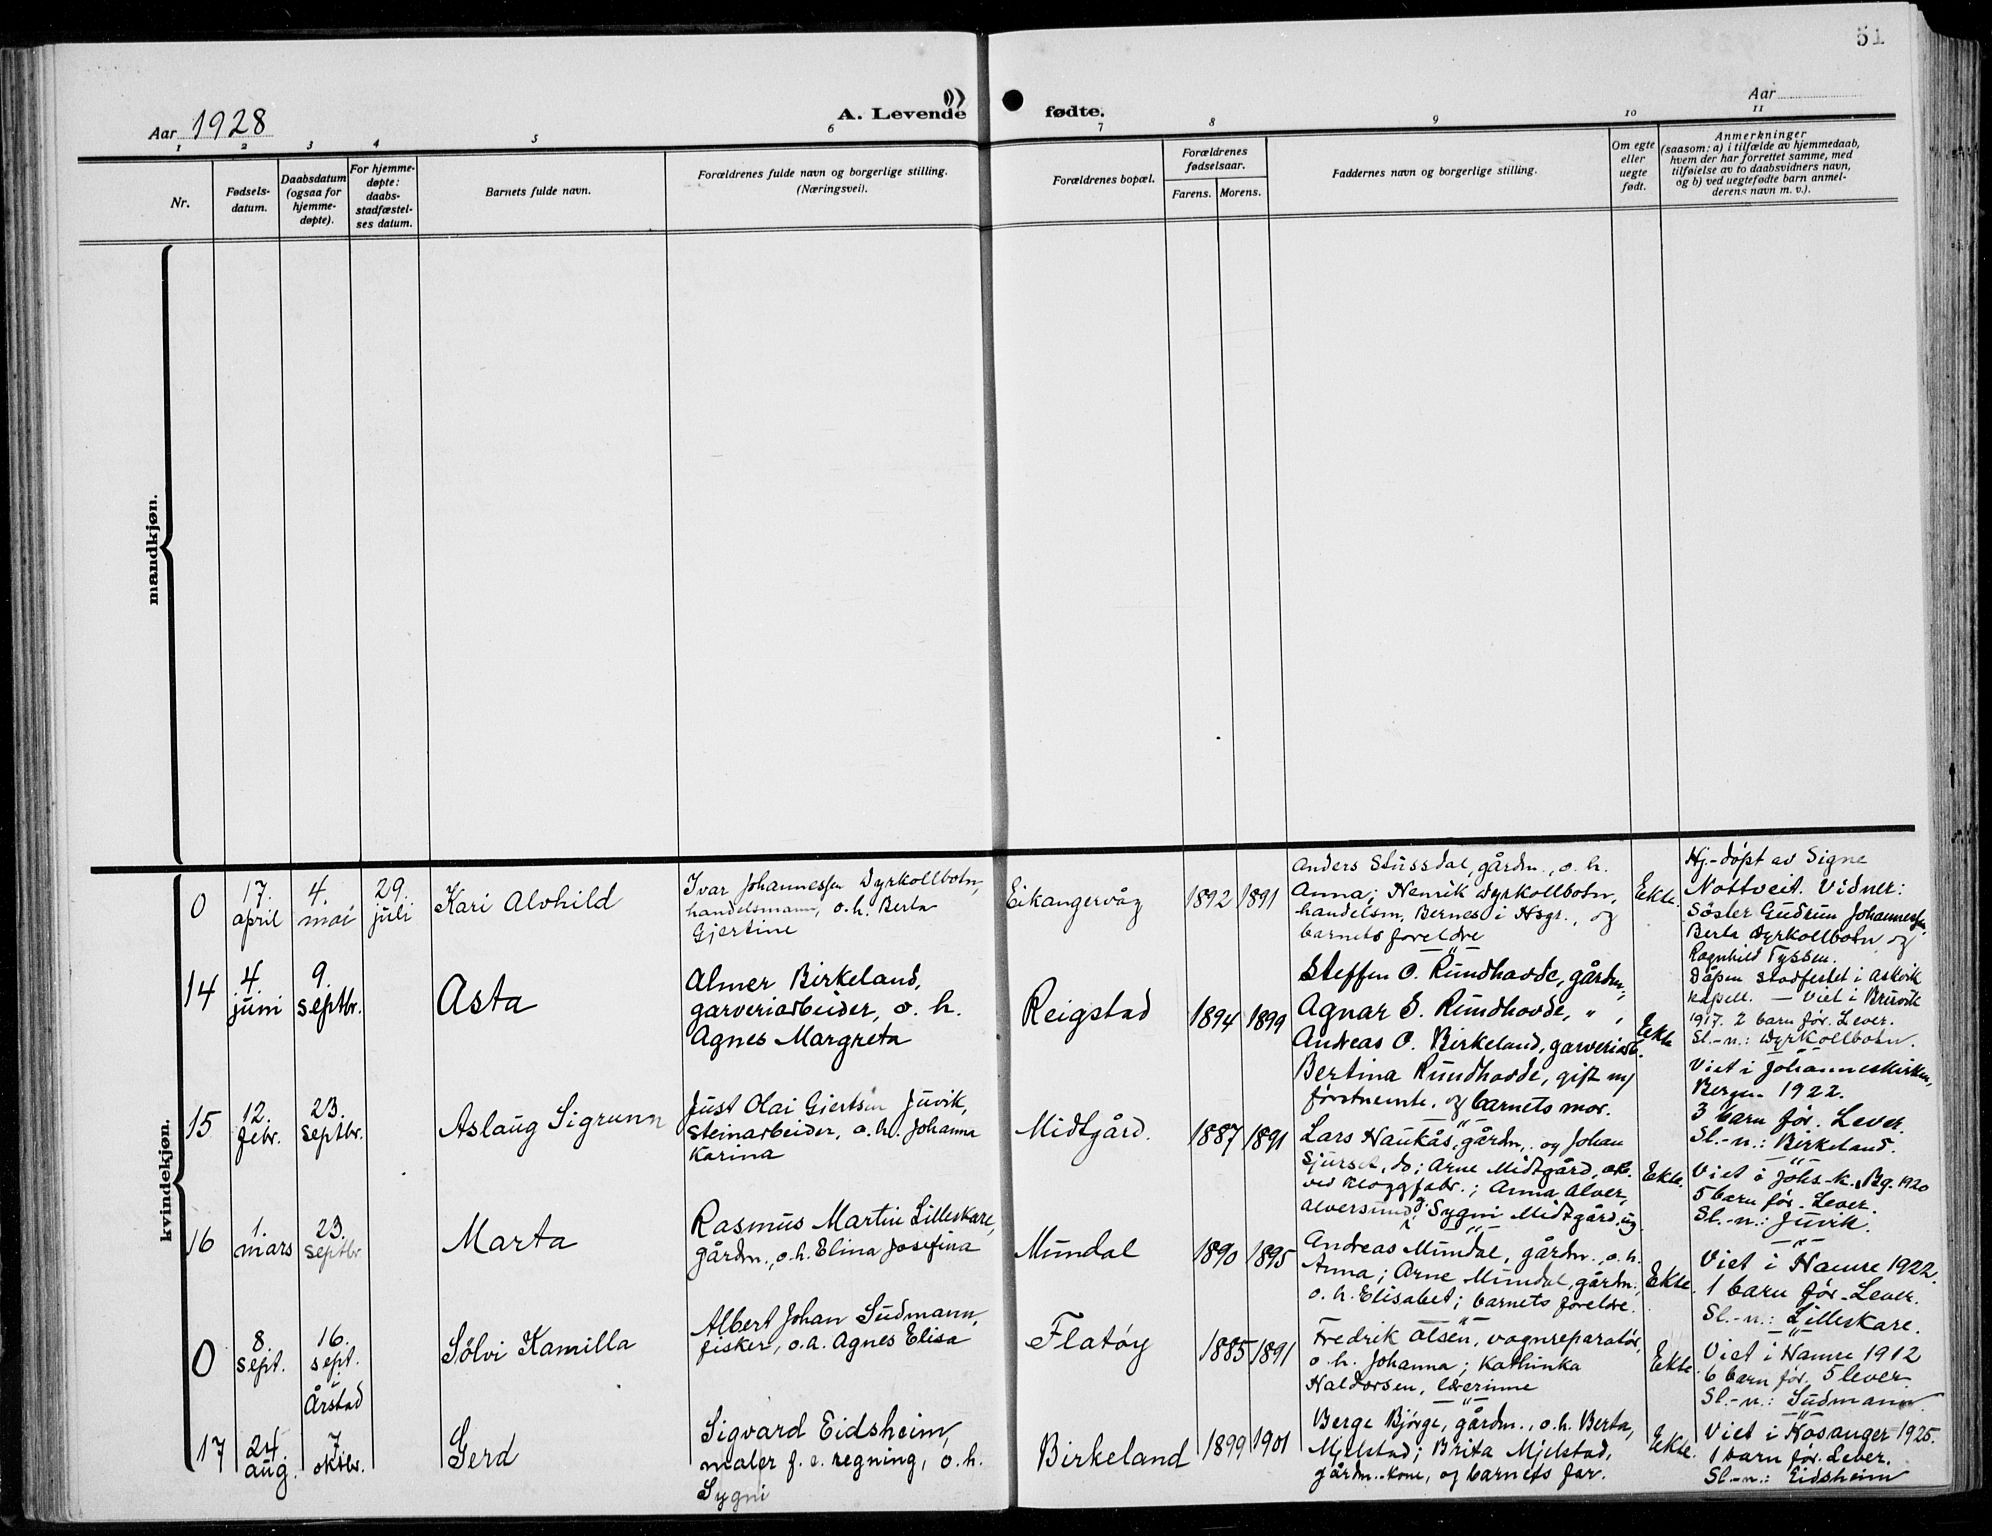 51
Aar 1928
A. Levende fødte.
Aar
1 2 3 4 5 6 7 8 9 10 11
Nr.
Fødsels-
datum.
Daabsdatum
(ogsaa for
hjemme-
døpte).
For hjemme-
døpte:
daabs-
stadfæstel-
ses datum.
Barnets fulde navn.
Forældrenes fulde navn og borgerlige stilling.
(Næringsvei).
Forældrenes bopæl.
Forældrenes
fødselsaar.
Farens. Morens.
Faddernes navn og borgerlige stilling.
Om egte
eller
uegte
født.
Anmerkninger
(saasom: a) i tilfælde av hjemmedaab,
hvem der har forrettet samme, med
tilføielse av to daabsvidners navn,
og b) ved uegtefødte barn anmel-
derens navn m. v.).
mandkjøn.
kvindekjøn.
0
17.
april
4.
mai
29.
juli
Kari Alvhild
Ivar Johannessen Dyrkollbotn,
handelsmann, o.h. Berta
Gjertine
Eikangervåg
1892 1891
Anders Stussdal, gårdm., o. h.
Anna; Henrik Dyrkollbotn,
handelsm, Bernes i Hsgr., og
barnets foreldre
Ekte.
Hj.-døpt av Signe
Nottveit. Vidner:
Søster Gudrun Johannessen,
Berta Dyrkollbotn og
Ragnhild Tyssen.
Dåpen stadfestet i Askvik
kapell. — Viet i Bruvik
1917. 2 barn før. Lever.
Sl.-n.: Dyrkollbotn.
14
4.
juni
9.
septbr.
Asta
Almer Birkeland,
garveriarbeider, o. h.
Agnes Margreta
Reigstad
1894 1899
Steffen O. Rundhovde, gårdm.,
Agnar S. Rundhovde, " ,
Andreas O. Birkeland, garveriarb.
Bertina Rundhovde, gift m/
førstnemte, og barnets mor.
Ekte
Viet i Johanneskirken,
Bergen 1922.
3 barn før. Lever.
Sl.-n.: Birkeland.
15
12.
febr.
23.
septbr.
Aslaug Sigrunn
Just Olai Gjertsen Juvik,
steinarbeider, o.h. Johanna
Karina
Midtgård.
1887 1891
Lars Haukås, gårdm., og Johan
Sjurset, do; Arne Midtgård, arb.
ved kloggfabr.; Anna Alver,
Alversund, og Sygni Midtgård, ug.
Ekte.
Viet i Johs.-k., Bg. 1920
5 barn før. Lever.
Sl.-n.: Juvik.
16
1.
mars
23.
septbr
Marta
Rasmus Martin Lilleskare,
gårdm., o.h. Elina Josefina
Mundal
1890 1895
Andreas Mundal, gårdm., o.h.
Anna; Arne Mundal, gårdm.,
o. h. Elisabet; barnets foreldre.
Ekte.
Viet i Hamre 1922.
1 barn før. Lever.
Sl.-n.: Lilleskare.
0
8.
sept.
16.
sept.
i
Årstad
Sølvi Kamilla
Albert Johan Sudmann,
fisker, o.h. Agnes Elisa
Flatøy
1885 1891
Fredrik Olsen, vognreparatør,
o. h. Johanna; Kathinka
Haldorsen, lærerinne
Ekte.
Viet i Hamre 1912
6 barn før. 5 lever.
Sl.-n.: Sudmann.
17
24.
aug.
7
oktbr.
Gerd
Sigvard Eidsheim,
maler f. e. regning, o. h.
Sygni
Birkeland
1899 1901
Berge Bjørge, gårdm., o.h. Berta,
Mjelstad; Brita Mjelstad,
gårdm.-kone, og barnets far.
Ekte.
Viet i Hosanger 1925.
1 barn før. Lever.
Sl.-n.: Eidsheim